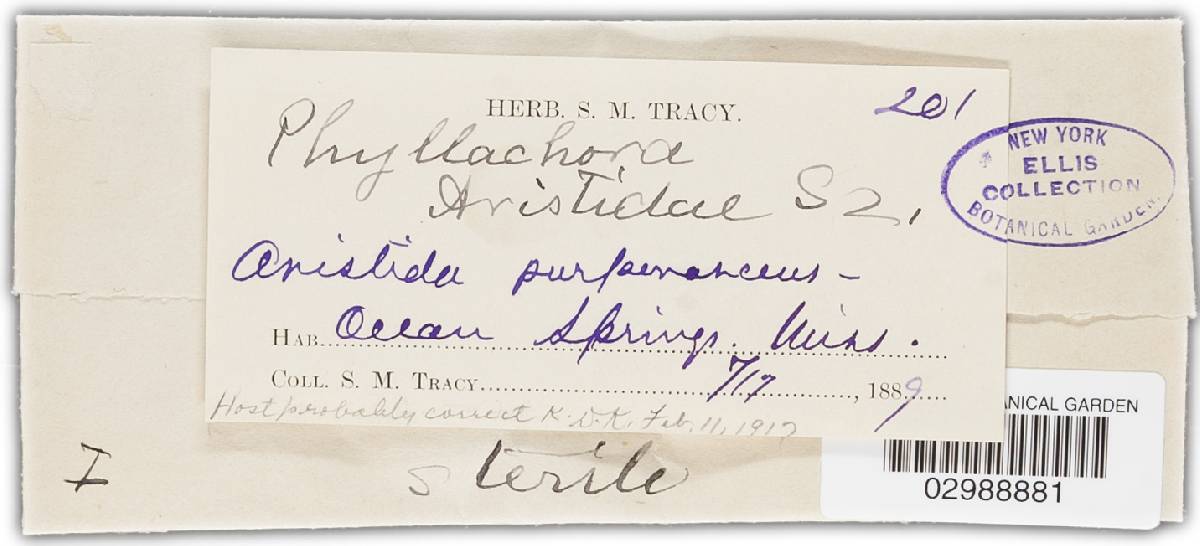 HERB. S. M. TRACY.
201
Phyllachora
Aristidae Sz.
Aristida purpurascens -
HAB. Ocean Springs. Miss.
COLL. S. M. TRACY. 7/17, 1889
Host probably correct K.D.K. Feb. 11, 1917
sterile
I
NEW YORK
ELLIS
COLLECTION
BOTANICAL GARDEN.
ANICAL GARDEN
02988881